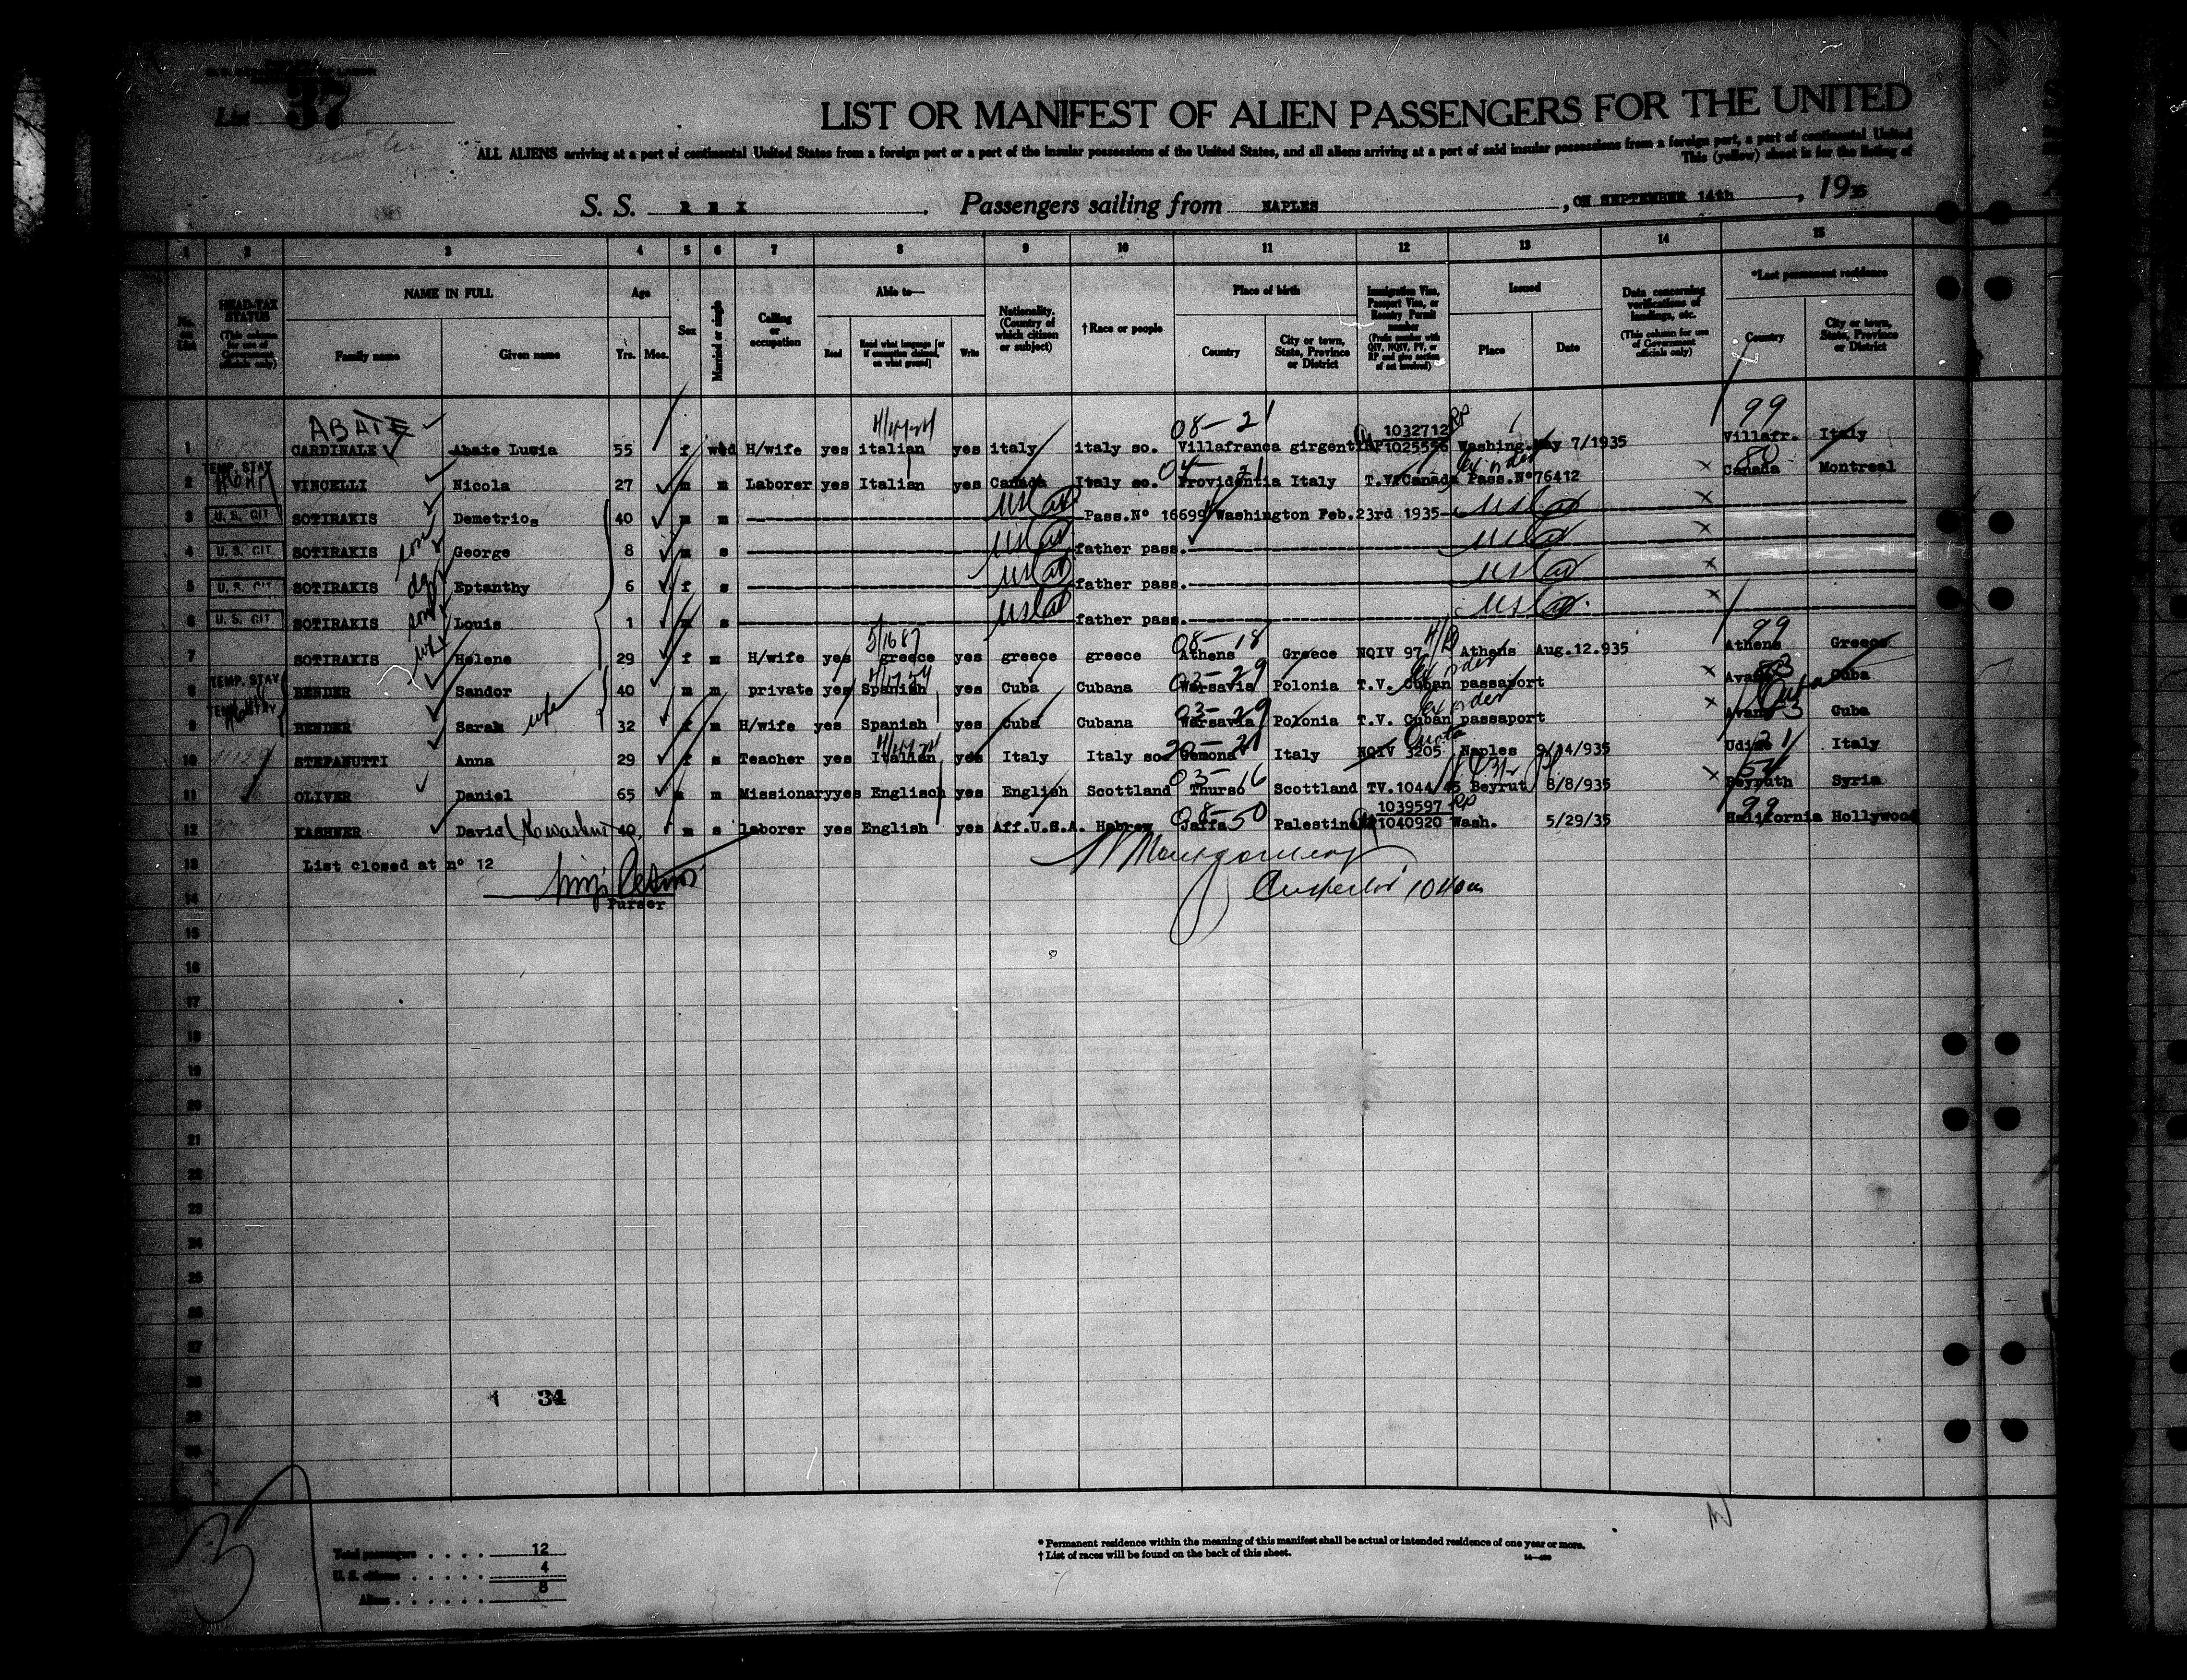 List 37
LIST OR MANIFEST OF ALIEN PASSENGERS FOR THE UNITED
ALL ALIENS arriving at a port of continental United States from a foreign port or a port of the insular possessions of the United States, and all aliens arriving at a port of said insular possessions from a foreign port, a port of continental United
This (yellow) sheet is for the listing of
S. S. R E X. Passengers sailing from NAPLES, ON SEPTEMBER 14th, 1935
1 2 3 4 5 6 7 8 9 10 11 12 13 14 15
No. on List
HEAD-TAX STATUS (This column for use of Government officials only)
NAME IN FULL Family name Given name
Age Yrs. Mos.
Sex
Married or single
Calling or occupation
Able to— Read Read what language [or if exemption claimed, on what ground] Write
Nationality. (Country of which citizen or subject)
†Race or people
Place of birth Country City or town, State, Province or District
Immigration Visa, Passport Visa, or Reentry Permit number (Prefix number with QIV, NQIV, PV, or RP and give section of act involved)
Issued Place Date
Data concerning verifications of landings, etc. (This column for use of Government officials only)
*Last permanent residence Country City or town, State, Province or District
ABATE 08-21 1032712 RP 99
1 CARDINALE Abate Lucia 55 f wed H/wife yes italian yes italy italy so. Villafranca girgenti RP 1025556 Washing. May 7/1935 Villafr. Italy
TEMP. STAY 80
2 VINCELLI Nicola 27 m m Laborer yes Italian yes Canada Italy so. Providentia Italy T.V. Canada Pass.Nº76412 Canada Montreal
3 U. S. CIT SOTIRAKIS Demetrios 40 m m Pass.Nº 16699 Washington Feb.23rd 1935
4 U. S. CIT SOTIRAKIS son George 8 m s father pass.
5 U. S. CIT SOTIRAKIS Eptanthy 6 f s father pass.
6 U. S. CIT SOTIRAKIS son Louis 1 m s father pass.
08-18 99
7 SOTIRAKIS Helene 29 f m H/wife yes greece yes greece greece Athens Greece NQIV 97 Athens Aug.12.935 Athens Greece
TEMP. STAY
8 BENDER Sandor 40 m m private yes Spanish yes Cuba Cubana Warsavia Polonia T.V. Cuban passaport Avana Cuba
TEMP. STAY 03-29 Cuba
9 BENDER Sarah wife 32 f m H/wife yes Spanish yes Cuba Cubana Warsavia Polonia T.V. Cuban passaport Avana Cuba
Quota 21
10 STEFANUTTI Anna 29 f s Teacher yes Italian yes Italy Italy so. Gemona Italy NQIV 3205 Naples 9/14/935 Udine Italy
03-16
11 OLIVER Daniel 65 m m Missionary yes Englisch yes English Scottland Thurso Scottland TV.1044/45 Beyrut 8/8/935 Beyruth Syria
08-50 1039597 RP 99
12 KASHNER David 40 m s laborer yes English yes Aff.U.S.A. Hebrew Jaffa Palestine RP 1040920 Wash. 5/29/35 Halifornia Hollywood
13 List closed at nº 12
14 Purser
Montgomery
Inspector
15
16
17
18
19
20
21
22
23
24
25
26
27
28
29
30
34
37
Total passengers . . . . 12
U. S. citizens . . . . . 4
Aliens . . . . . . 8
* Permanent residence within the meaning of this manifest shall be actual or intended residence of one year or more.
† List of races will be found on the back of this sheet.